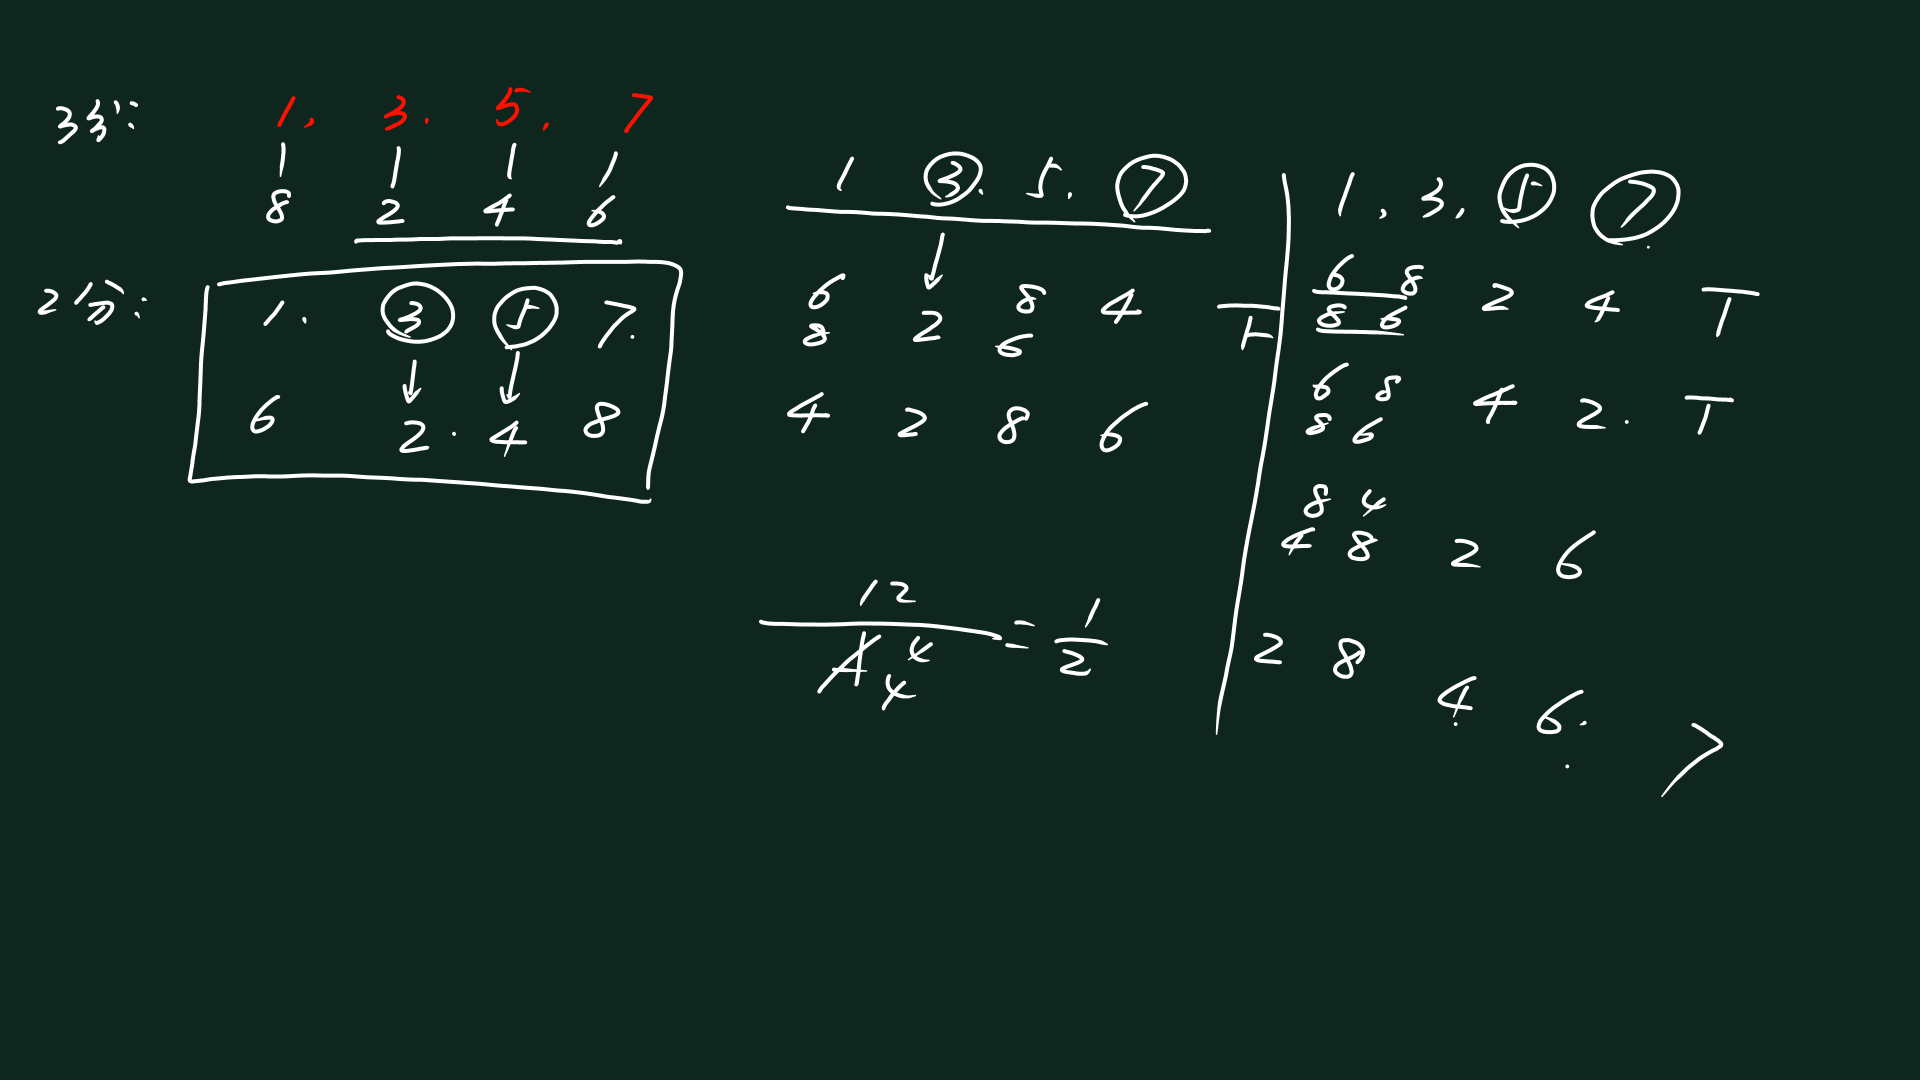 3分: 1, 3. 5, 7
8 2 4 6
2分: 1. ③ ⑤ 7.
6 2. 4 8
1 ③. 5. ⑦
6 2 8 4 T
8 6
4 2 8 6
12/A₄⁴ = 1/2
1, 3, ⑤ ⑦.
6 8 2 4 T
8 6
6 8 4 2. T
8 6
8 4
4 8 2 6
2 8 4 6. 7